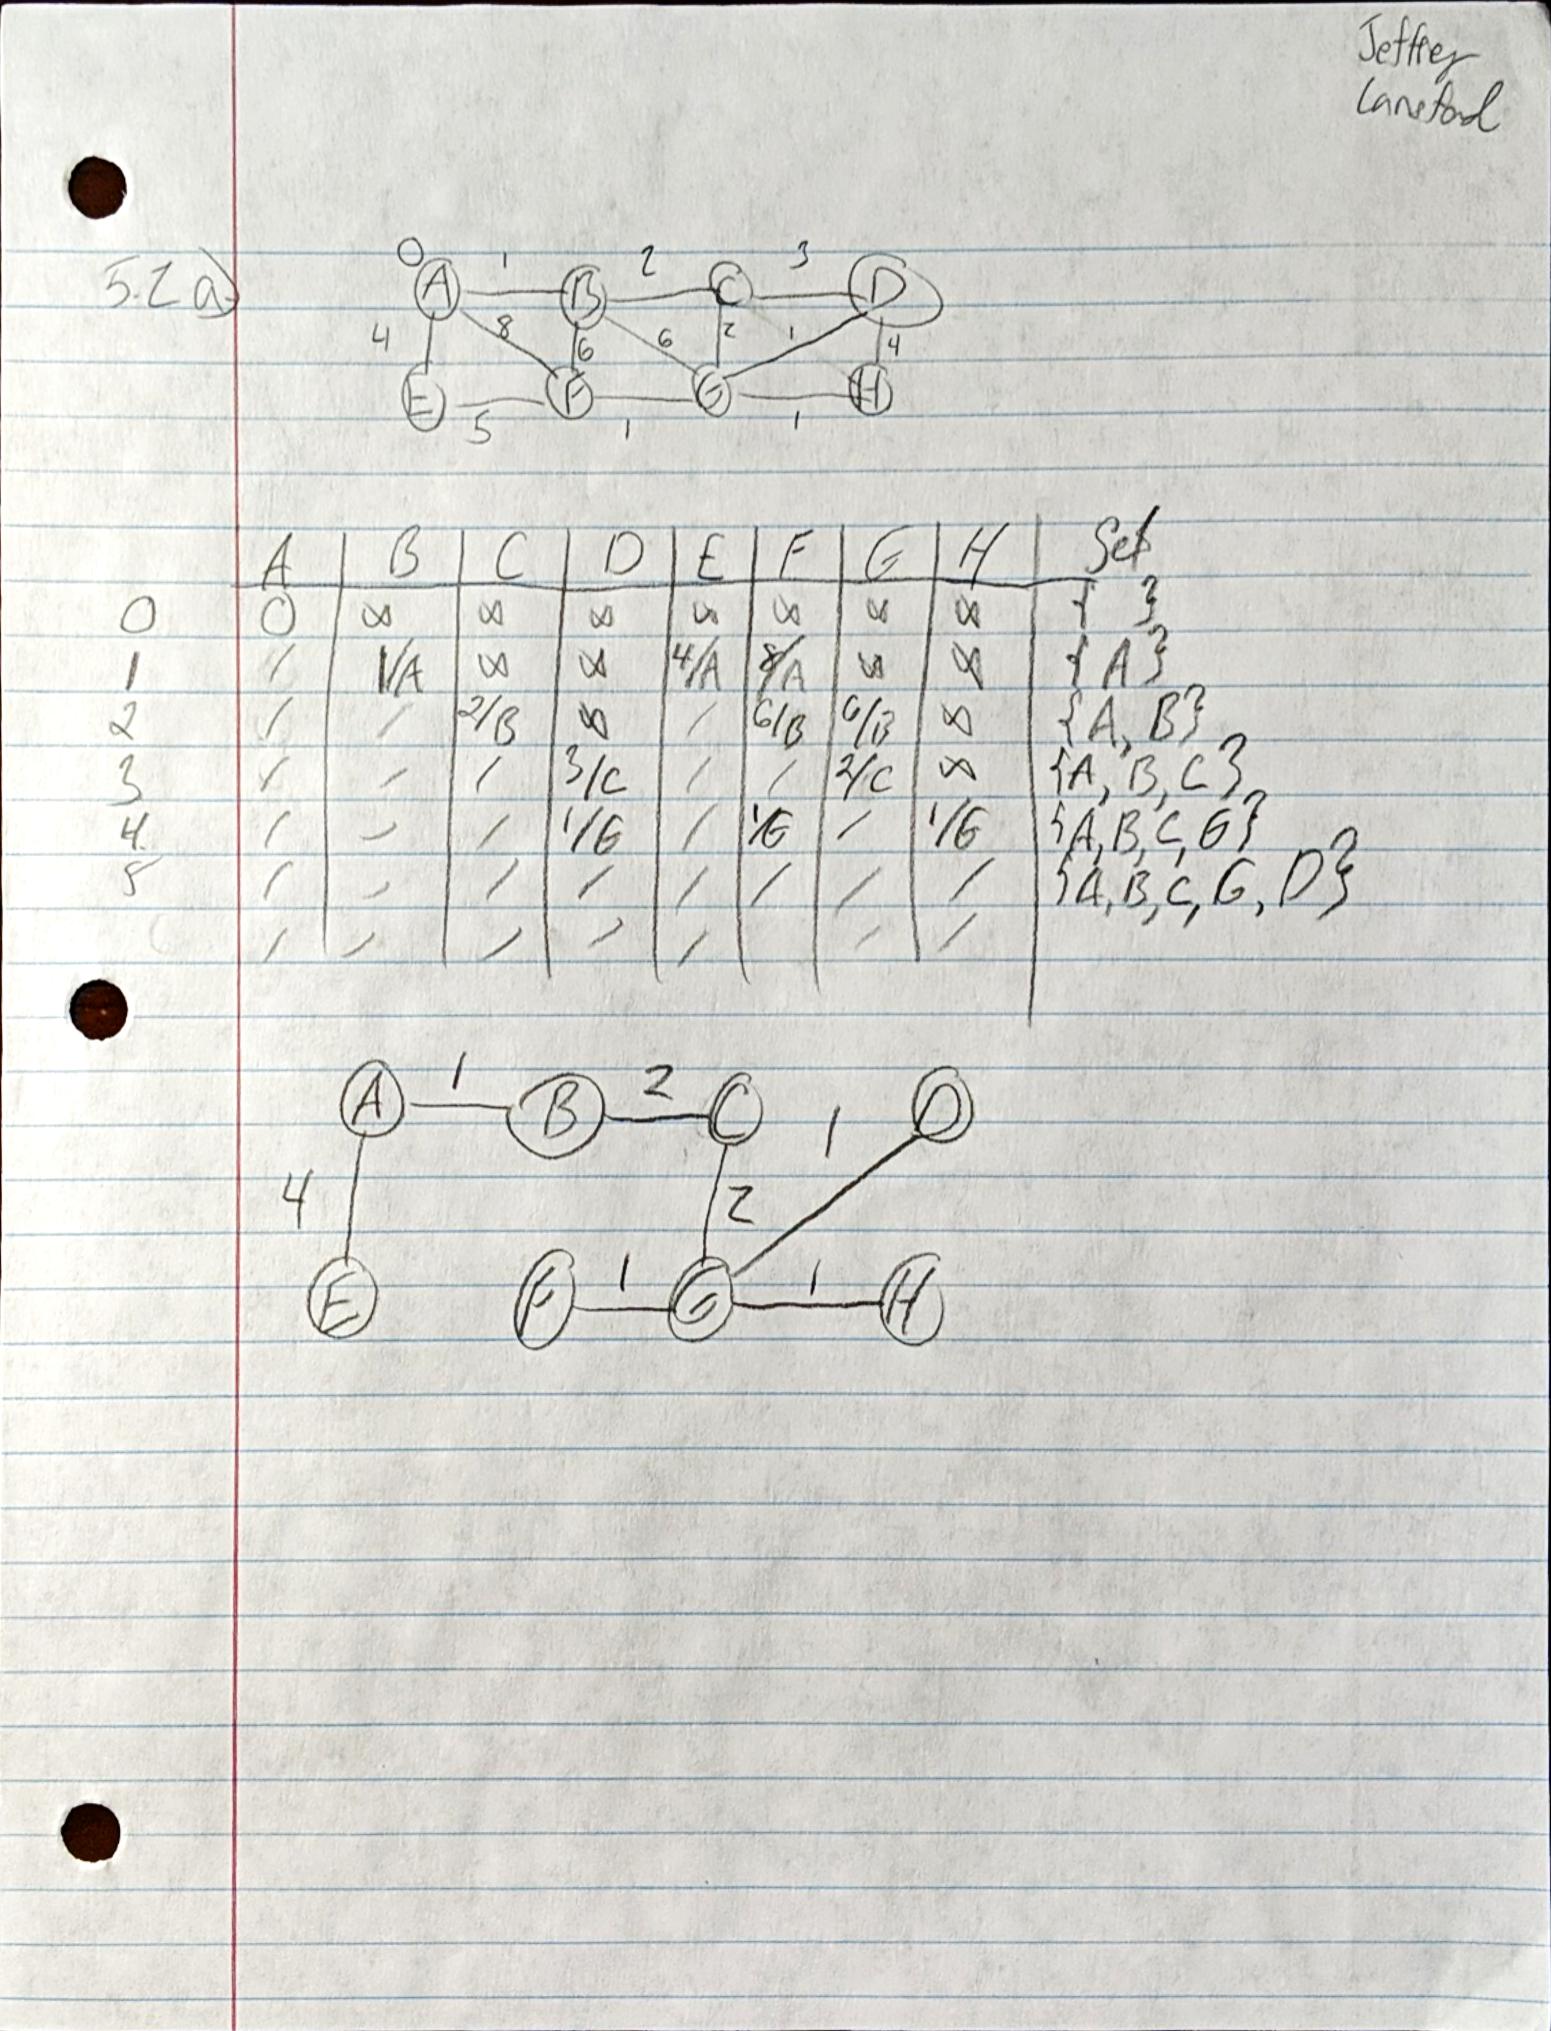 Jeffrey
Lansford
5.2 a)
0 1 2 3
A B C D
4 8 6 6 2 1 4
E F G H
5 1 1
A B C D E F G H Set
0 0 ∞ ∞ ∞ ∞ ∞ ∞ ∞ { }
1 / 1/A ∞ ∞ 4/A 8/A ∞ ∞ {A}
2 / / 2/B ∞ / 6/B 6/B ∞ {A, B}
3 / / / 3/C / / 2/C ∞ {A, B, C}
4 / / / 1/G / 1/G / 1/G {A, B, C, G}
5 / / / / / / / / {A, B, C, G, D}
/ / / / / / /
A 1 B 2 C 1 D
4 2
E F 1 G 1 H